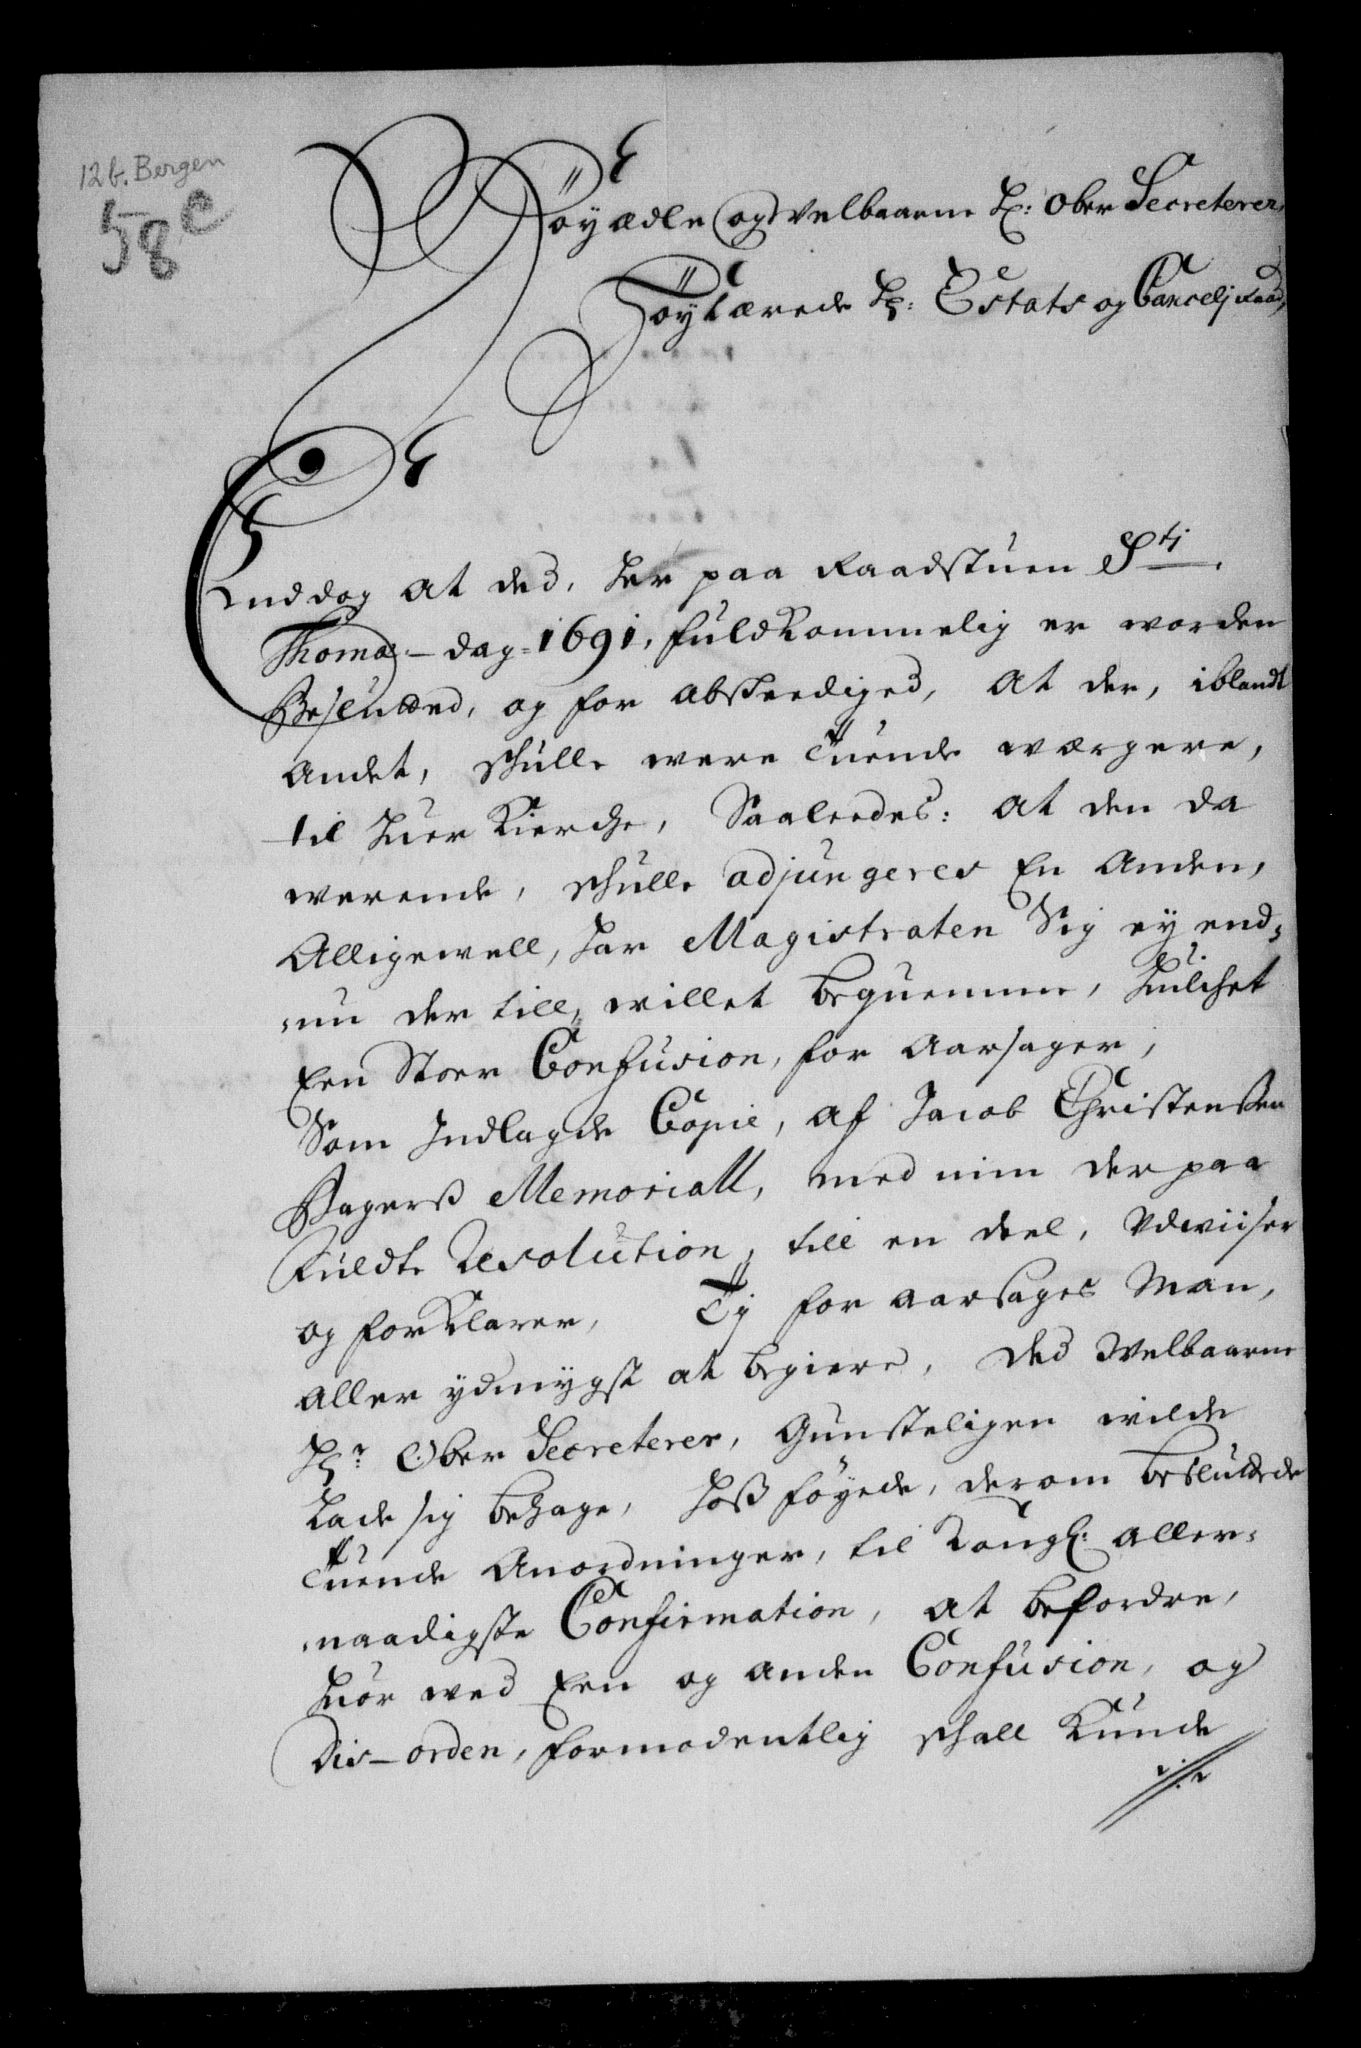 12b. Bergen
58 c
Höyædle og Velbaarne Hr: Ober Secreterer,
Höylærede Hr: Estats og Cancelj Raad,
Enddog at ded, her paa Raadstuen Stj
Thomæ - dag = 1691, fuldkommelig er worden
Besluttend, og for abskeediged, at der, iblandt
andet, schulle were tuende wærgere,
til huer Kierche, Saaleedes: at den da
werende, schulle adjungeres En Anden,
Alligewell, har Magistraten Sig ey end,
nu der till, willet beqvemme, huilchet
Een Stoer Confusion, for aarsager,
Som Indlagde Copie, af Jacob Christenßen
Bagerß Memoriall, med min der paa
fuldte Resolution, till en deel, Udwiiser
og forklarer, Tj for aarsages Man,
aller ydmygst at begiere, ded Welbaarne
Hr: Ober Secreterer, Gunsteligen wilde
Lade sig behage, hoß föyede, derom besluttede
tuende Anordninger, til Kongl: aller,
naadigste Confirmation, at befordre,
huor wed Een og anden Confusion, og
Dis-orden, formodentlig schall Kunde